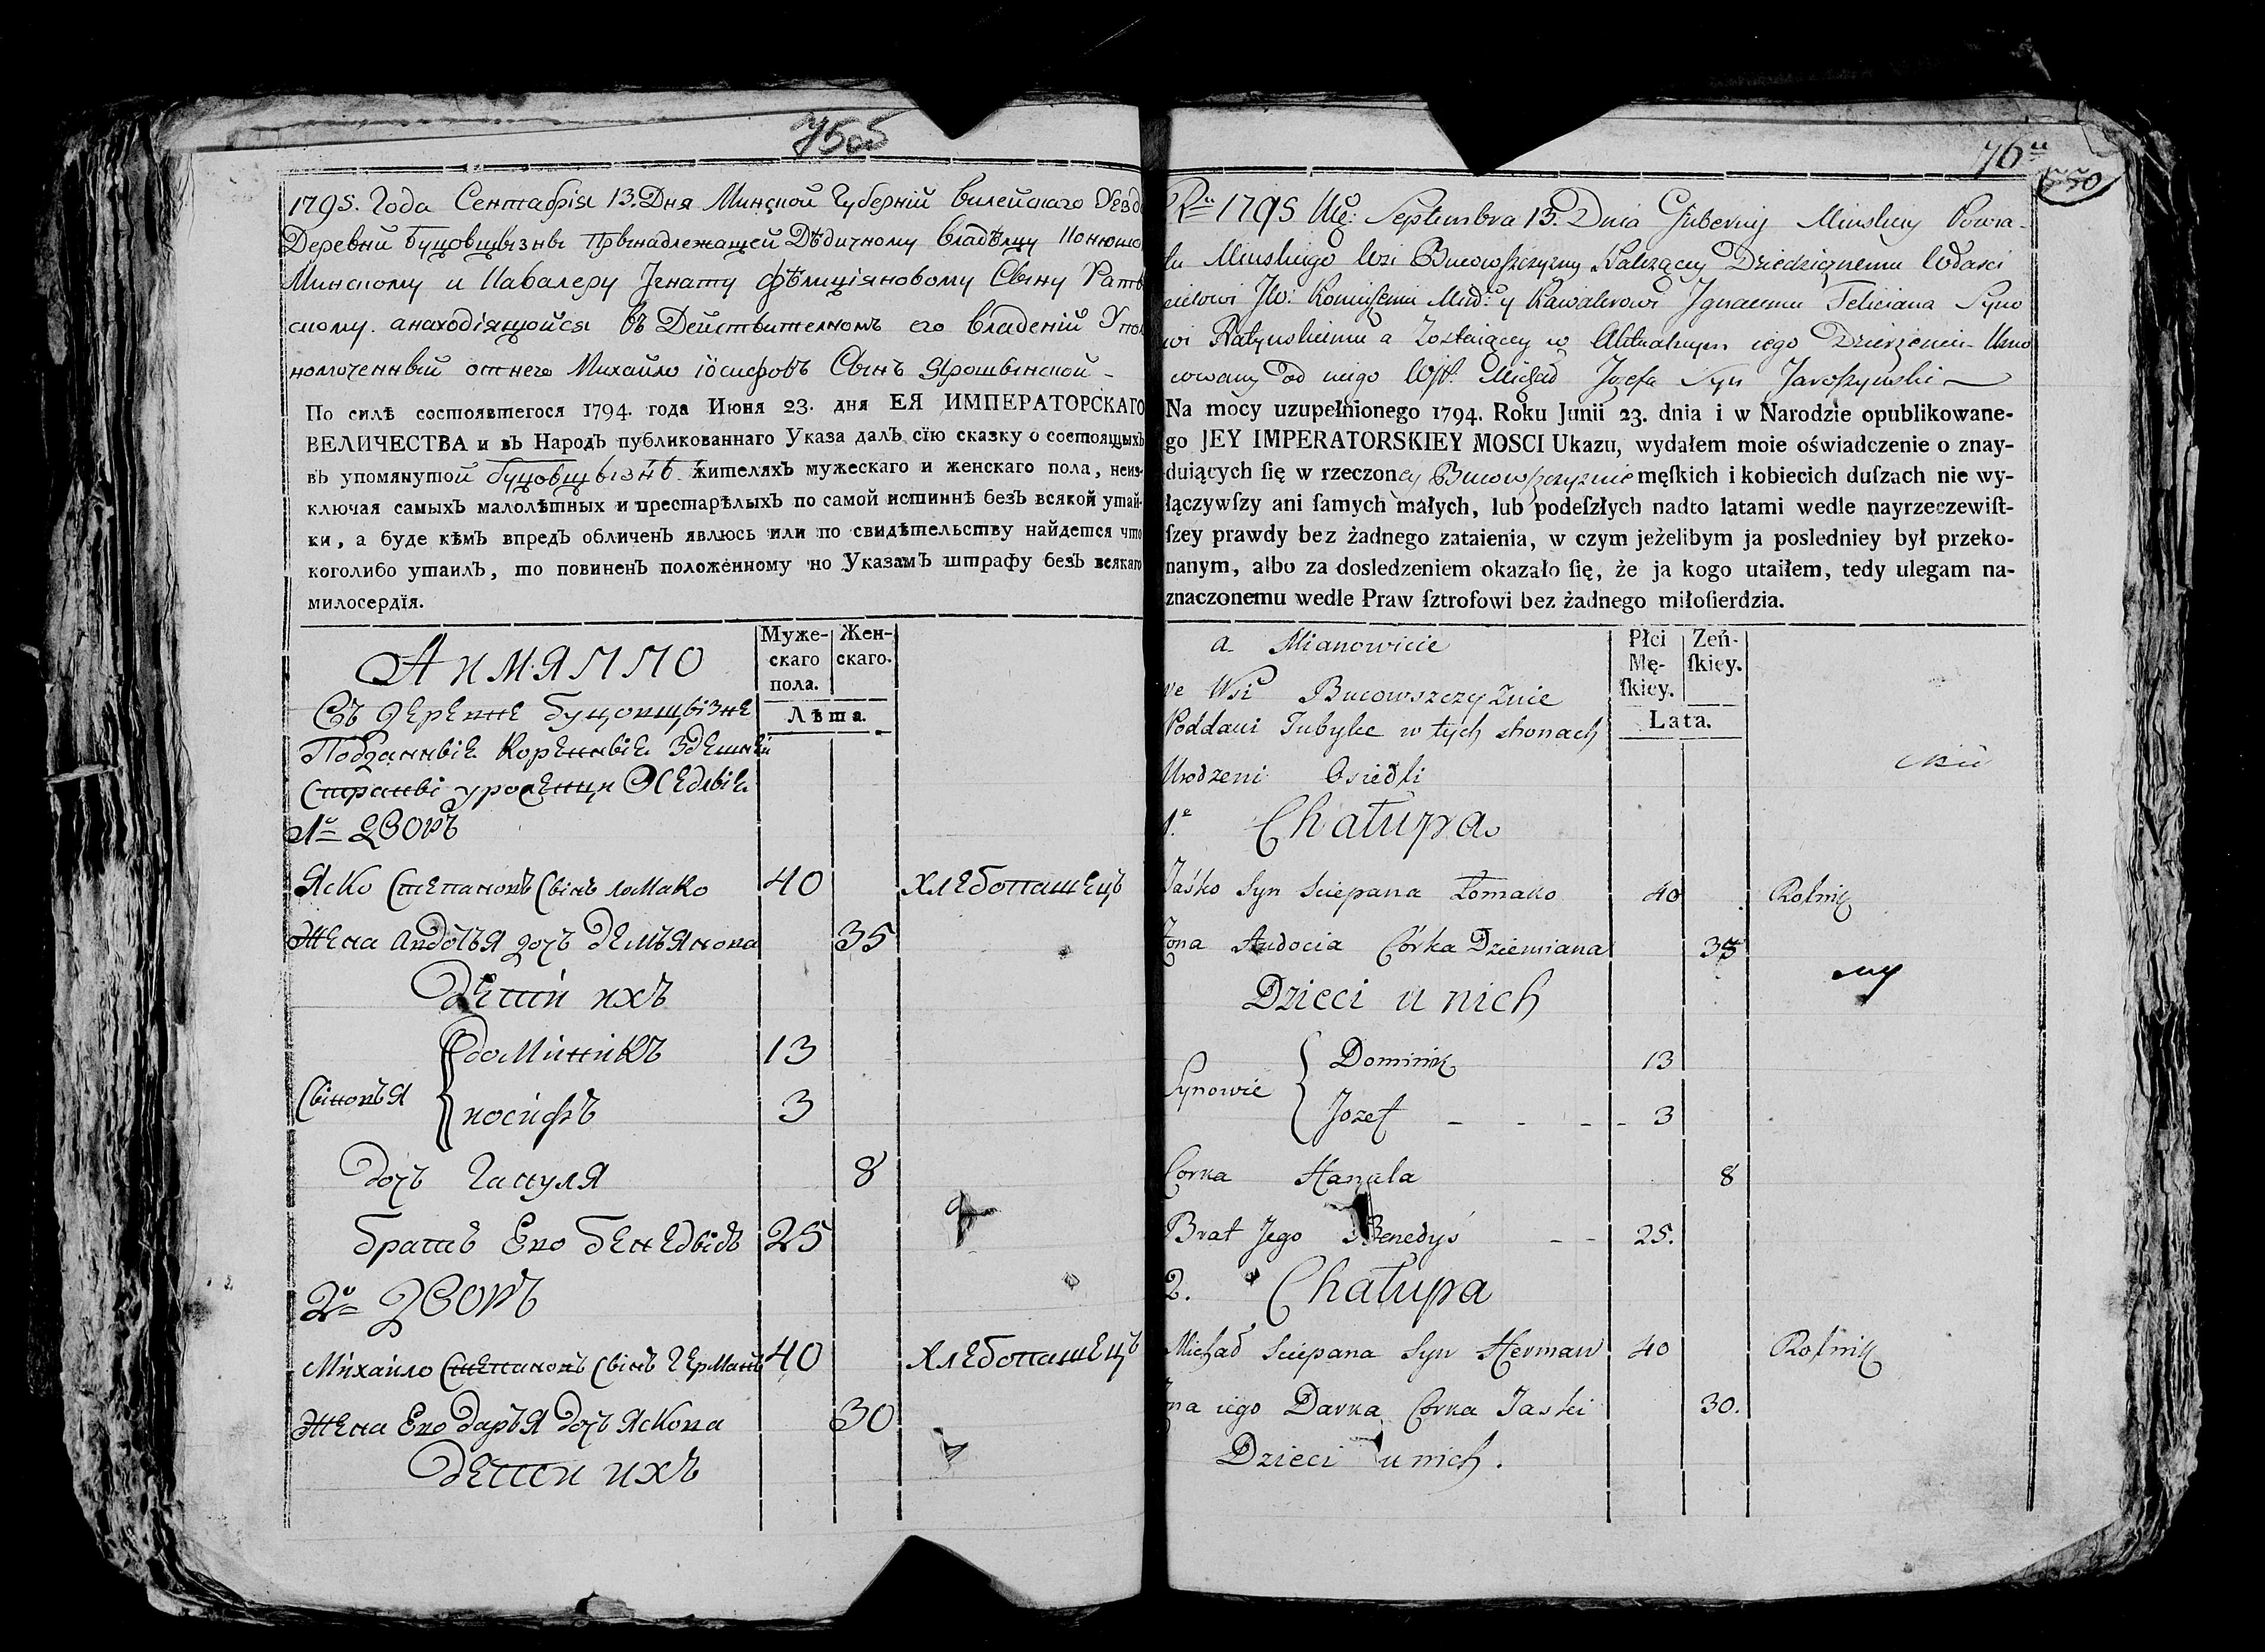 1795. Года Сентабрія 13. Дня Минской Губерніи Вилейскаго Уезд
Деревни Буцовщызны Прынадлежащей Дѣдичному Владѣлцу
Минскому и Кавалеру Игнату Фѣлиціяновому Сыну Раты
скому. анаходіящойся въ Действителномъ его владеніи Упол
номоченный отнего Михайло Іосифовъ Сынъ Ярошынской -
По силѣ состоявшегося 1794. года Июня 23. дня ЕЯ ИМПЕРАТОРСКАГО
ВЕЛИЧЕСТВА и въ Народъ публикованнаго Указа далъ сїю сказку о состоящыхъ
въ упомянутой Буцовщызнѣ жителяхъ мужескаго и женскаго пола, неиз-
ключая самыхъ малолѣтныхъ и престарѣлыхъ по самой истиннѣ безъ всякой утай-
ки, а буде кѣмъ впредъ обличенъ явлюсь или по свидѣтельству найдется что
коголибо утаилъ, то повиненъ положенному по Указамъ штрафу безъ всякаго
милосердїя.
Муже-
скаго
пола.
Жен-
скаго.
Лѣта.
А имянно
Въ деревне Буцовщызне
Подданные Коренные Здешней
Страны уроженци Оседлые
1º дворъ
Яско Степановъ Сынъ Ломако 40 хлебопашецъ
Жена Авдотъя дочъ Демъянова 35
Дети ихъ
Сыновъя
Доминикъ 13
иосифъ 3
дочъ Гануля 8
братъ Ево бенедыдъ 25
2º дворъ
Михайло Степановъ Сынъ Германъ 40 хлебопашецъ
Жена Ево Даръя дочъ Яскова 30
Дети ихъ
76
550
Rku 1795 Mca: Septembra 13. Dnia Gubernij Minskiey Powia-
tu Minskiego Wsi Bucowszczyzny Należącey Dziedzicznemu Właści
cielowi JW. Mińd: y Kawalerowi Jgnacemu Feliciana Syno
wi Ratynskiemu a Zostaiącey w Aktualnym iego Dzierżeniu Umo
cowany od niego WJP. Michał Jozefa Syn Jaroszynski
Na mocy uzupełnionego 1794. Roku Junii 23. dnia i w Narodzie opublikowane-
go JEY IMPERATORSKIEY MOSCI Ukazu, wydałem moie oświadczenie o znay-
duiących ſię w rzeczoney Bucowszczyznie męſkich i kobiecich duſzach nie wy-
łączywſzy ani ſamych małych, lub podeſzłych nadto latami wedle nayrzeczewiſt-
ſzey prawdy bez żadnego zataienia, w czym jeżelibym ja posledniey był przeko-
nanym, albo za dosledzeniem okazało ſię, że ja kogo utaiłem, tedy ulegam na-
znaczonemu wedle Praw ſztrofowi bez żadnego miłoſierdzia.
Płci
Mę-
ſkiey.
Zeń-
ſkiey.
Lata.
a Mianowicie
we Wsi Bucowszczyznie
Poddani Tubylce w tych stronach
Urodzeni Osiedli
1.a Chałupa
Jaśko Syn Sciepana Łomako 40 Rolnik
Żona Audocia Córka Dziemiana 35
Dzieci u nich
Synowie
Dominik 13
Jozef - - - - 3
Corka Hanula 8
Brat Jego Benedyś - - 25.
2. Chałupa
Michał Sciepana Syn Herman 40 Rolnik
Żona iego Darka Corka Jaśki 30.
Dzieci u nich.